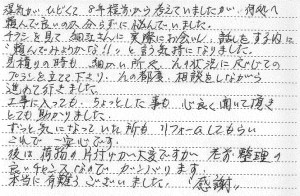 湿気がひどくて、8年程前から考えていましたが、何処へ
頼んで良いのか分らずに悩んでいました。
チラシを見て 細江さんに実際にお会いし、話しをする内に
"頼んでみようかな!!"と言う気持になりました。
見積りの時も 細かい所や、んの状況に応じての
プランを立てて下さり、んの都度、相談をしながら
進めて行きました。
工事に入っても、ちょっとした事も 心良く聞いて頂き
とても助かりました。
ずっと気になっていた所も リフォームしてもらい
これで 一安心です。
後は 荷物の片付けが大変ですが 老前整理の
良いチャンスなので、がんばります。
本当に有難うございました。 "感謝"